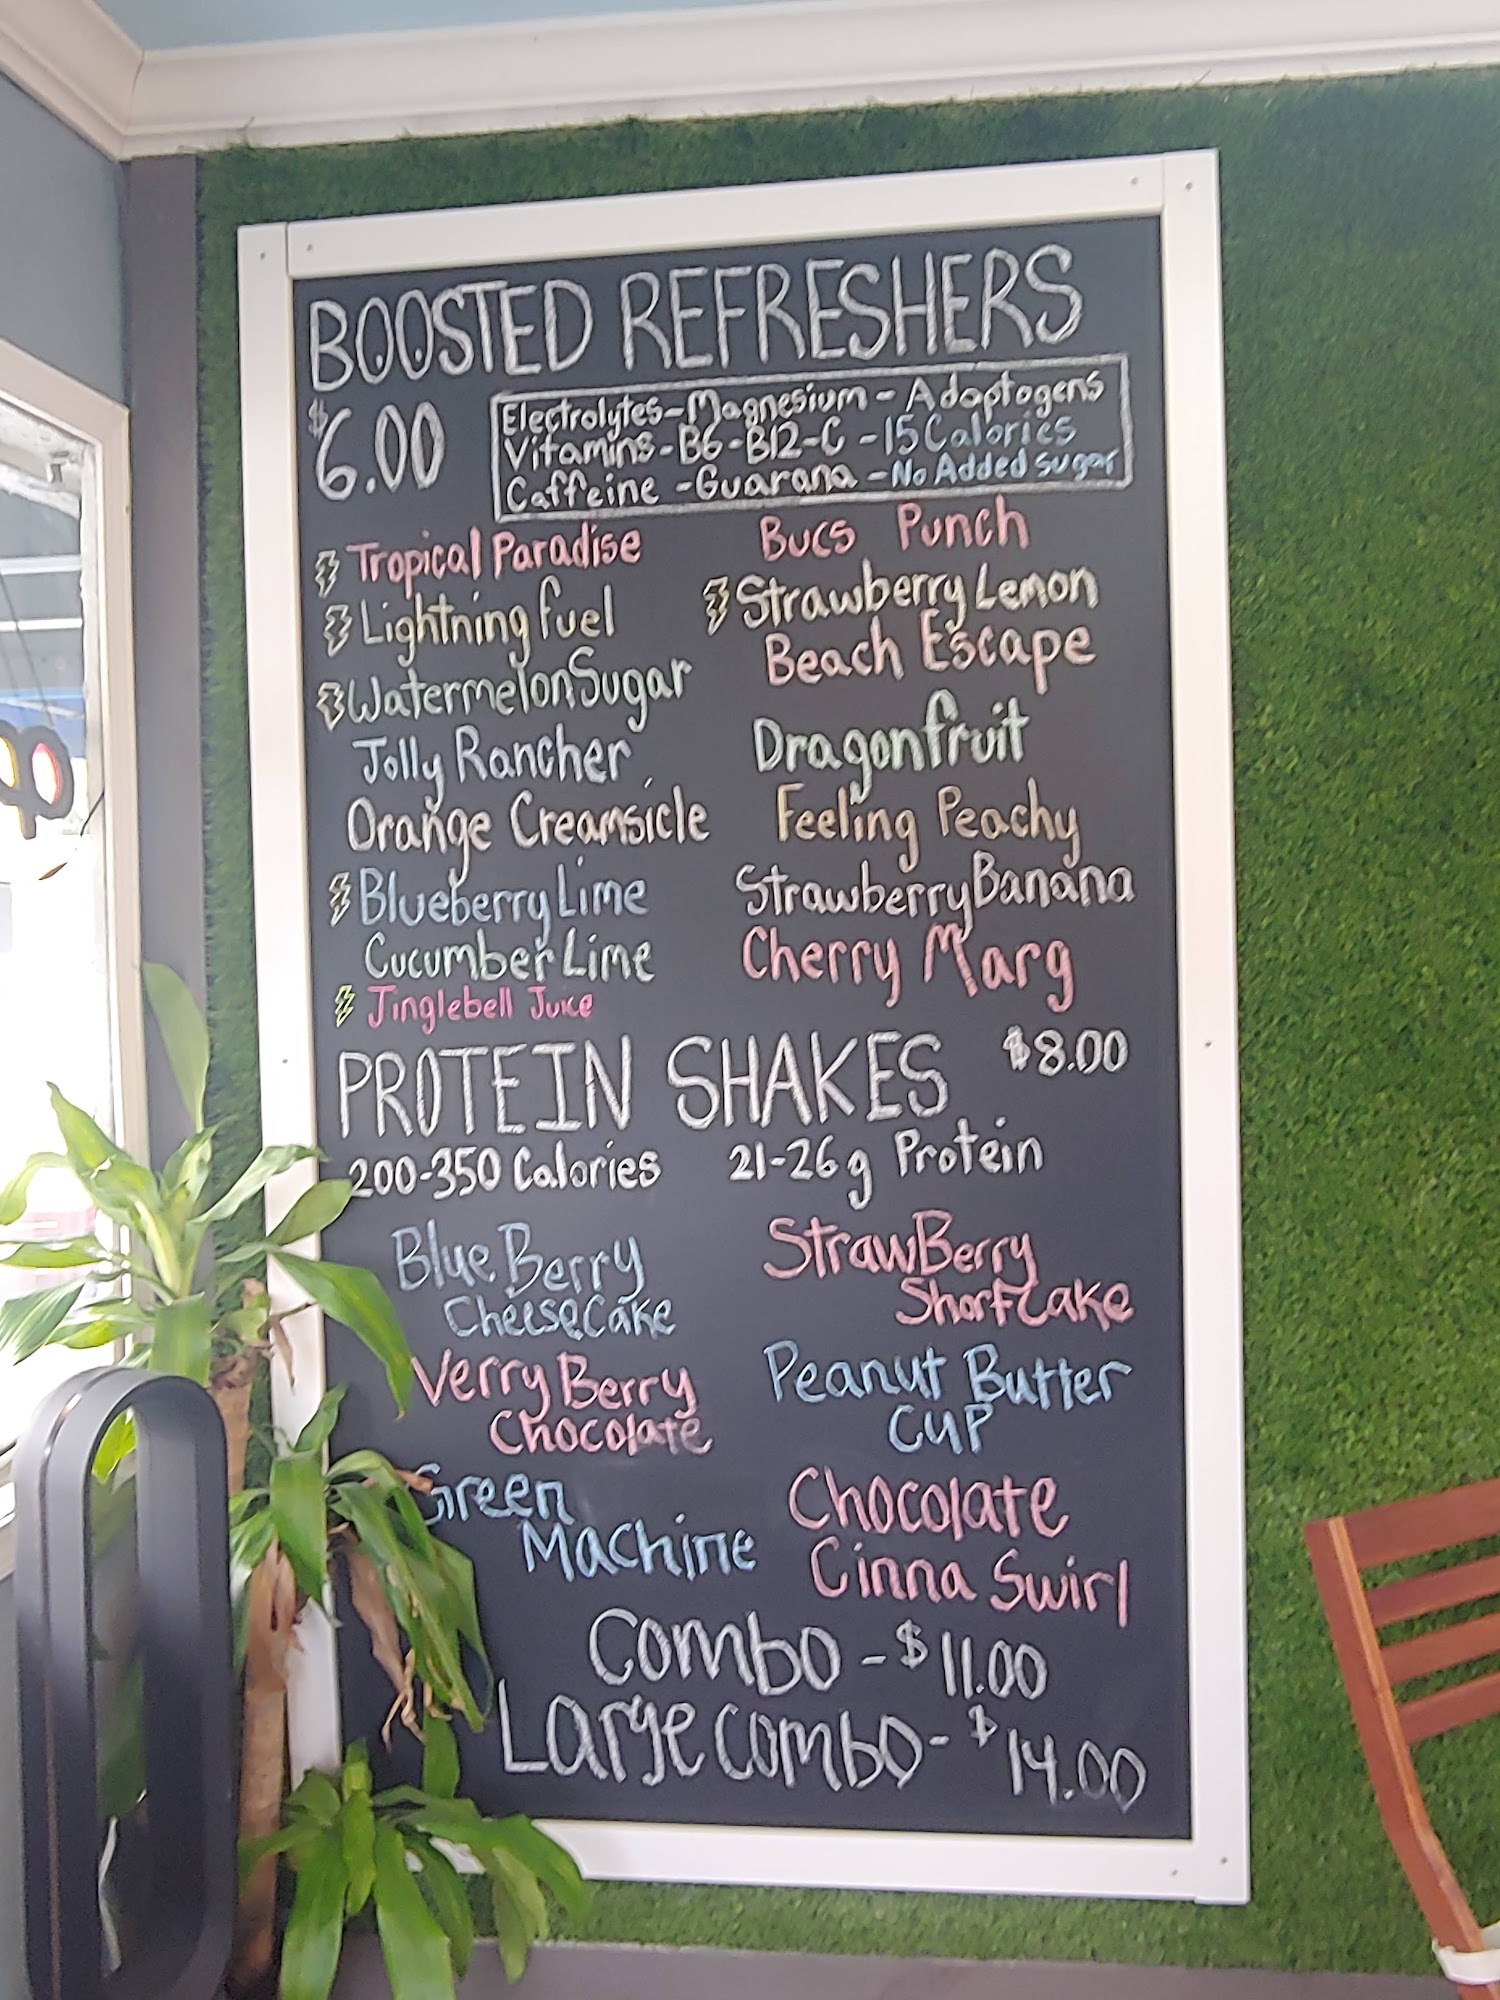 BOOSTED REFRESHERS
$6.00
Electrolytes-Magnesium-Adaptogens
Vitamins-B6-B12-C-15 Calories
Caffeine-Guarana-No Added sugar
Tropical Paradise
Lightning fuel
Watermelon Sugar
Jolly Rancher
Orange Creamsicle
Blueberry Lime
Cucumber Lime
Jinglebell Juice
Bucs Punch
Strawberry Lemon
Beach Escape
Dragonfruit
Feeling Peachy
Strawberry Banana
Cherry Marg
PROTEIN SHAKES $8.00
200-350 Calories 21-26g Protein
Blue Berry
CheeseCake
Verry Berry
Chocolate
Green
Machine
StrawBerry
Shortcake
Peanut Butter
CUP
Chocolate
Cinna Swirl
Combo-$11.00
Large combo-$14.00